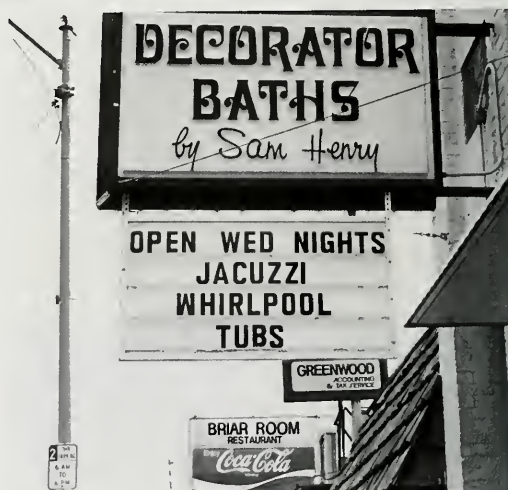 DECORATOR
BATHS
by Sam Henry
OPEN WED NIGHTS
JACUZZI
WHIRLPOOL
TUBS
GREENWOOD
ACCOUNTING
& TAX SERVICE
BRIAR ROOM
RESTAURANT
Enjoy
Coca-Cola
2
6 AM
TO
6 PM